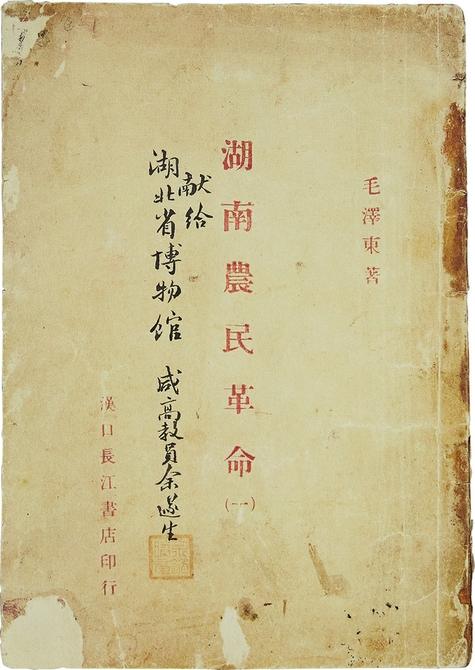 毛澤東著
湖南農民革命(一)
献给
湖北省博物馆 咸高教員余遂生
漢口長江書店印行